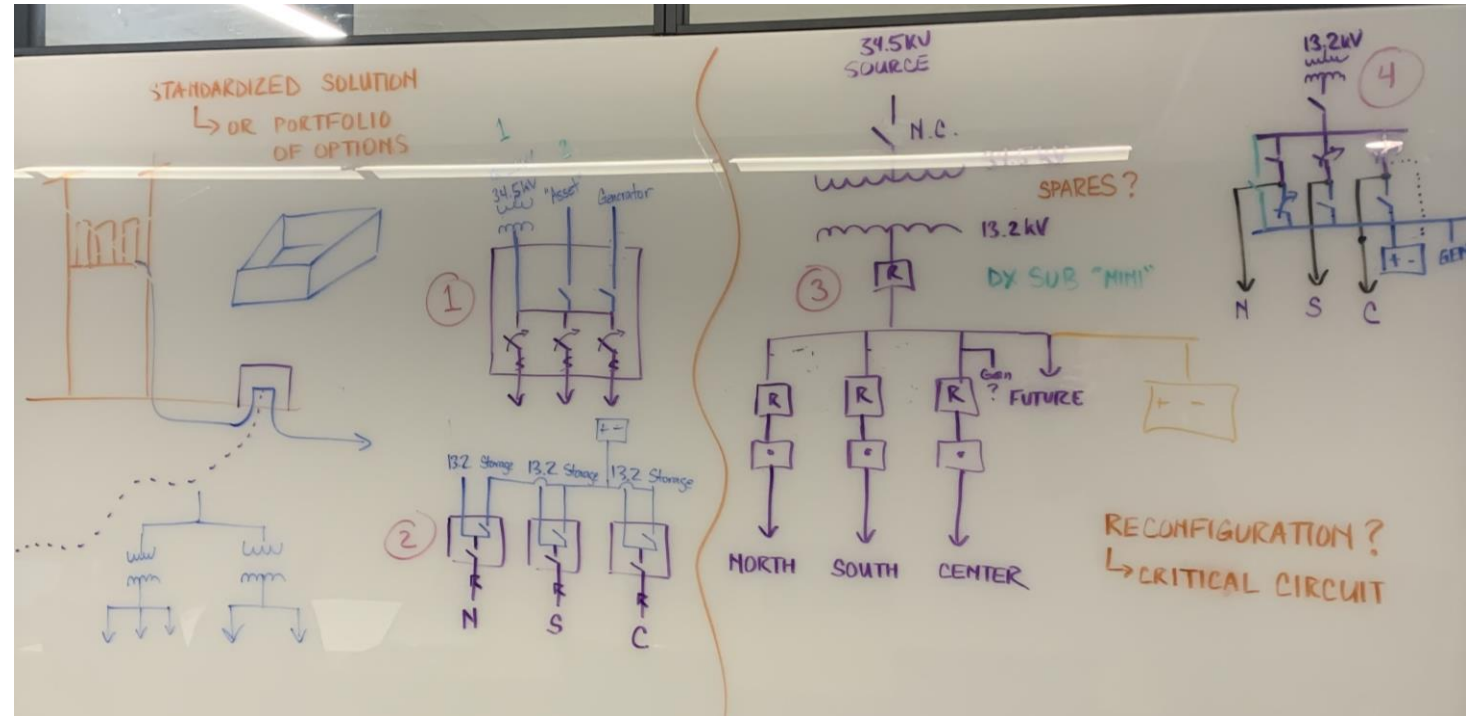 STANDARDIZED SOLUTION
↳ OR PORTFOLIO
OF OPTIONS
1
2
34.5kV
"Asset"
Generator
1
+ -
13.2 Storage
13.2 Storage
13.2 Storage
2
N
S
C
34.5KV
SOURCE
N.C.
34.5kV
SPARES?
13.2kV
R
DX SUB "MINI"
3
R
R
R
Gen
?
FUTURE
+ -
NORTH
SOUTH
CENTER
RECONFIGURATION?
↳ CRITICAL CIRCUIT
13.2kV
4
+ -
GEN
N
S
C